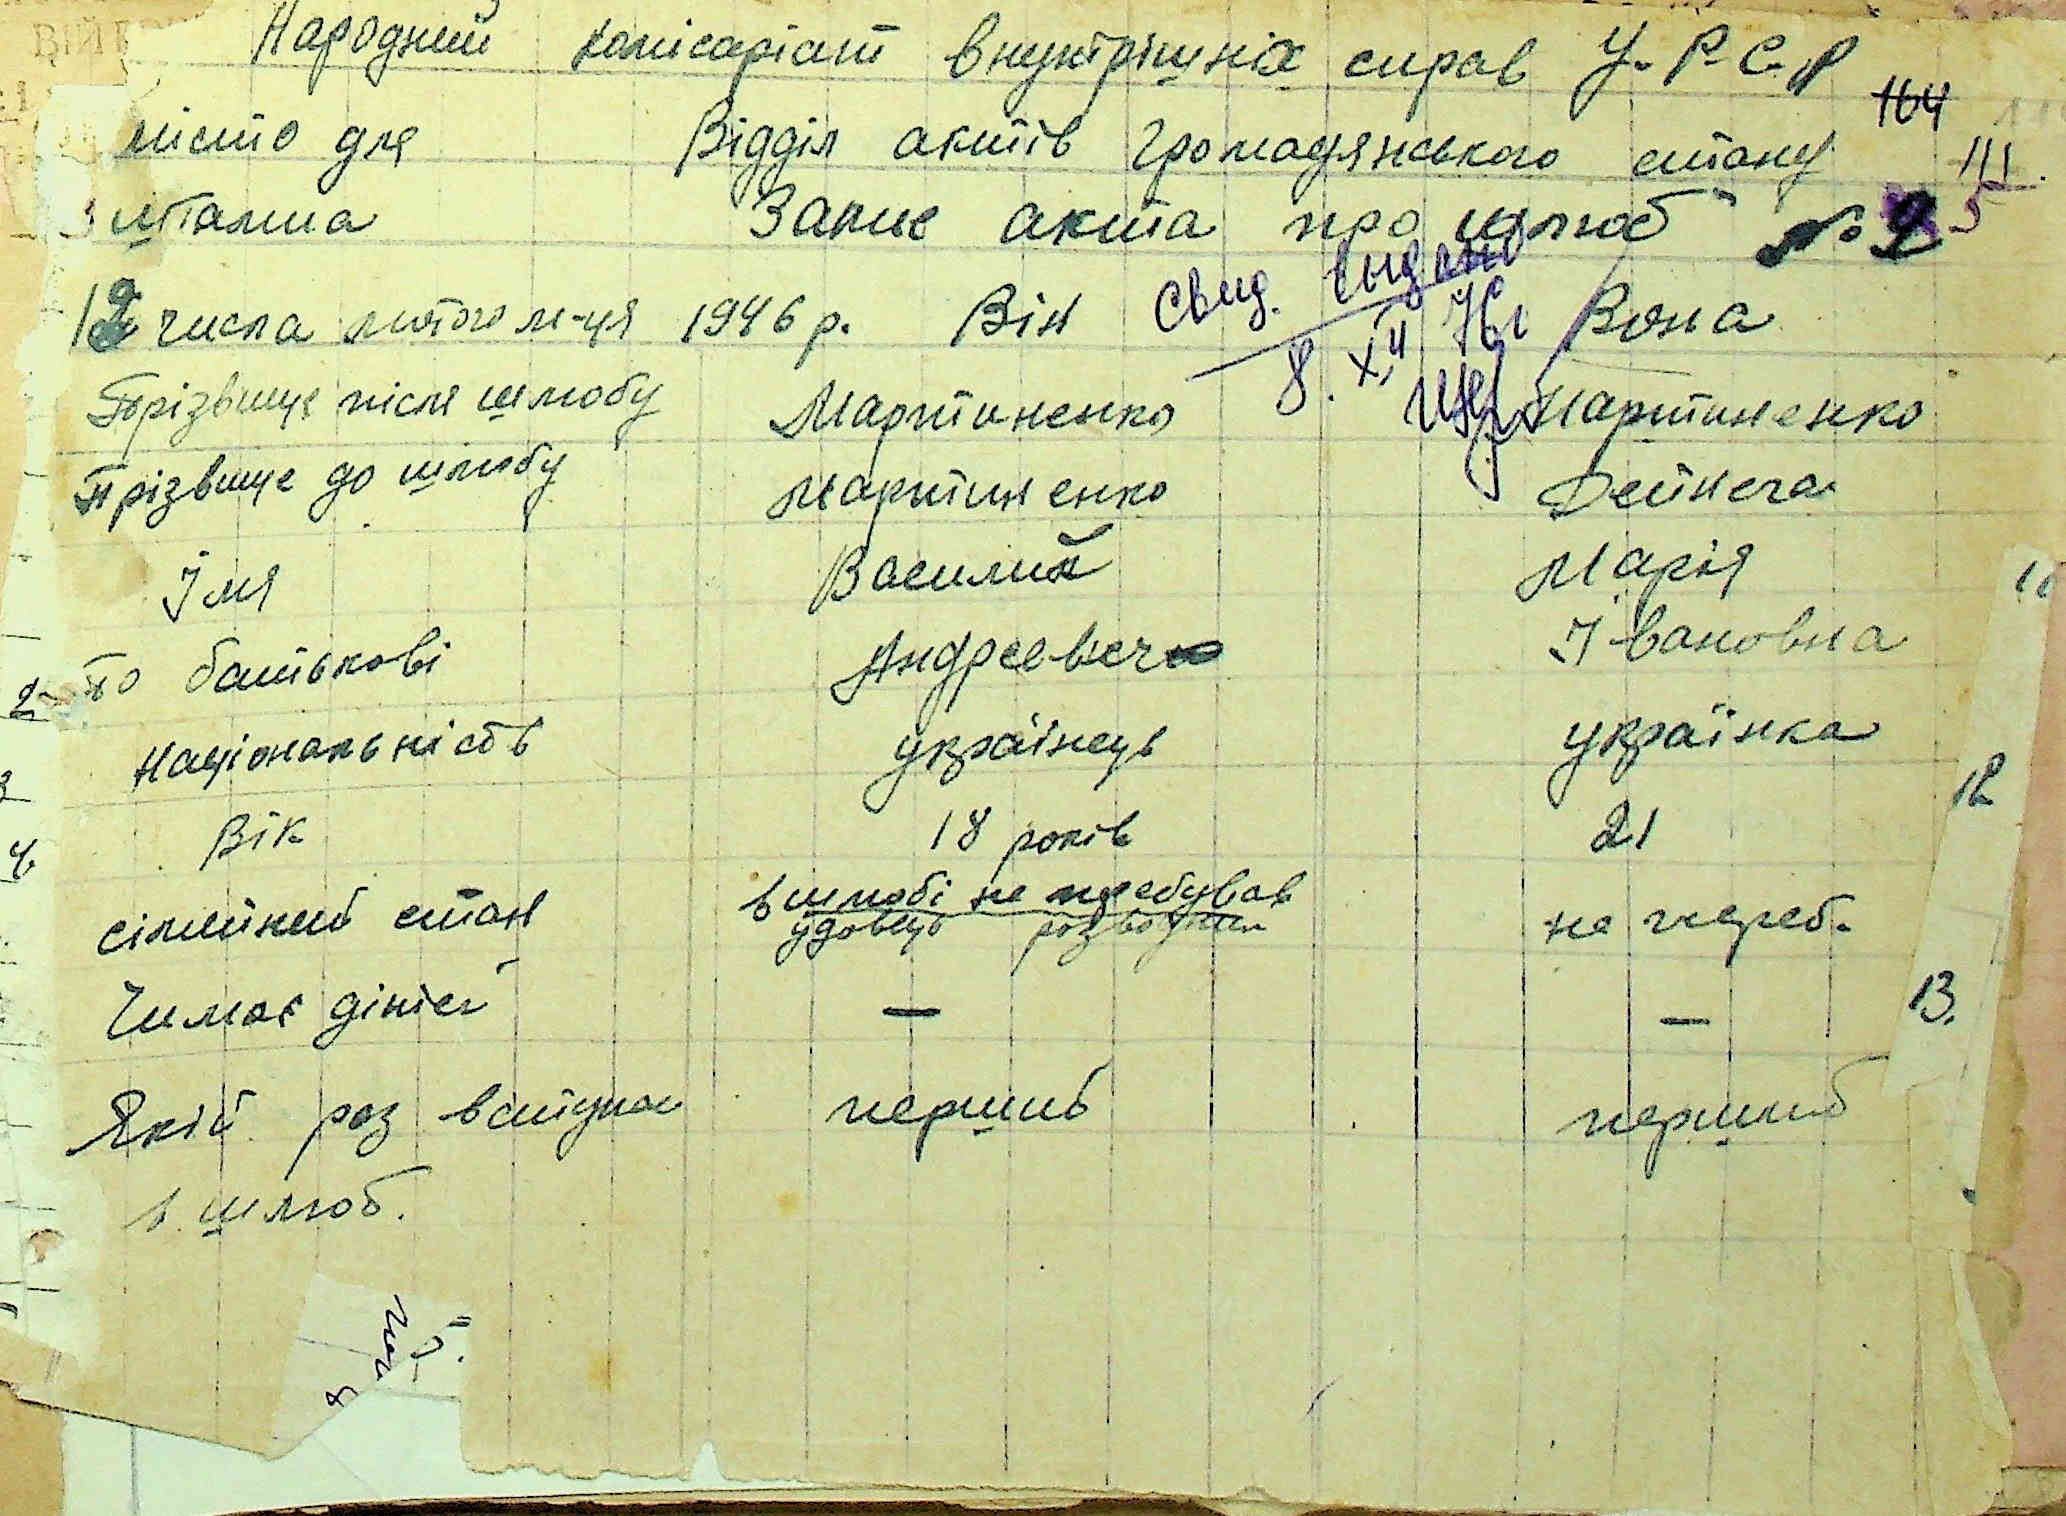 Народний комісаріат внутрішніх справ У.Р.С.Р
164
місто для Відділ актів громадянського стану 111
штампа Запис акта про шлюб № 5
12 числа лютого м-ця 1946 р. Він Вона
Свид. выдано
8. XII 76г
Прізвище після шлюбу Мартиненко Мартиненко
Прізвище до шлюбу Мартиненко Дейнега
Імя Василий Марія
По батькові Андреевич Івановна
Національність українець українка
Вік 18 років 21
сімейний стан в шлюбі не перебував не переб.
удовець розводний
Чи має дітей — —
Якій раз вступа перший перший
в шлюб.
2
3
4.
11
12
13.